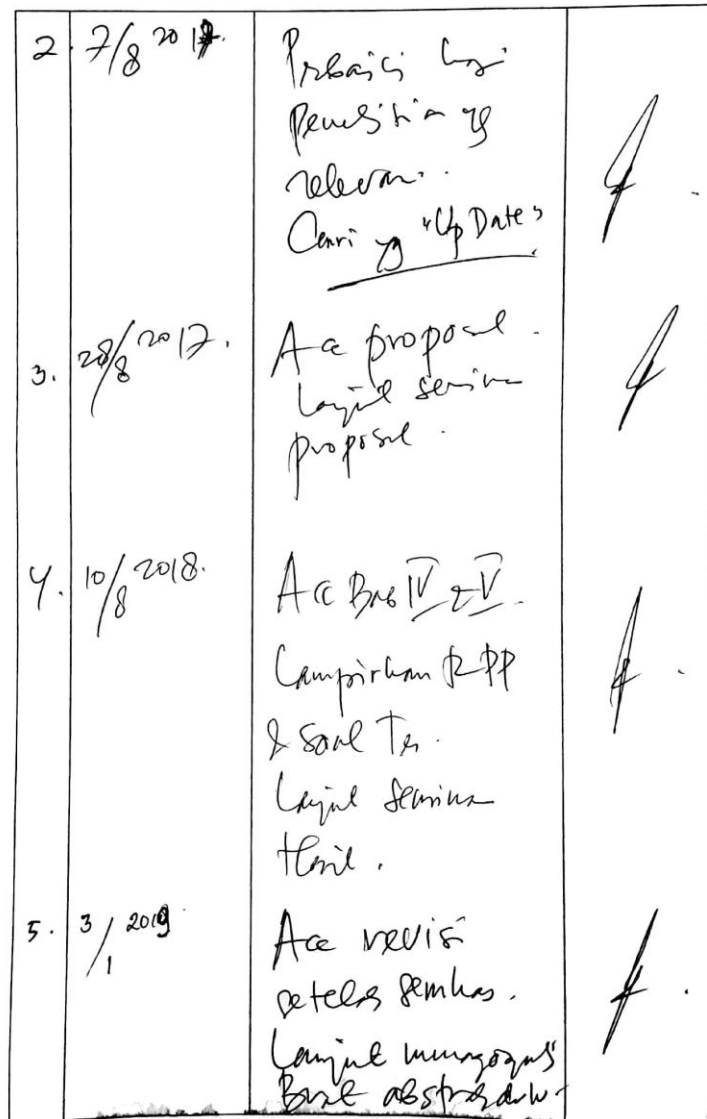 2. 7/8 2017.
Perbaiki lagi
Penelitian yg
relevan.
Cari yg "Up Date"
3. 28/8 2017.
Acc proposal.
Lanjut seminar
proposal.
4. 10/8 2018.
Acc Bab IV & V.
Lampirkan RPP
& Soal Tes.
Lanjut Seminar
Hasil.
5. 3/1 2019
Acc revisi
setelah semhas.
Lanjut munaqosyah
Buat abstrak dulu